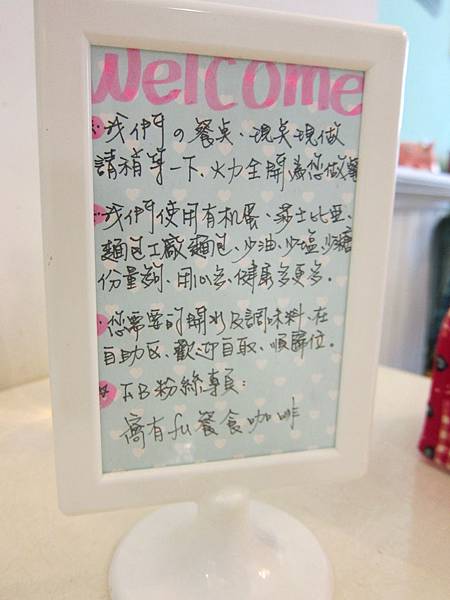 Welcome
我們の餐桌、現點現做
請稍等一下、火力全開為您做餐
我們使用有机蛋、莎士比亞、
麵包工廠麵包、少油、少塩、少糖
份量夠、用心多、健康多更多。
您需要的開水及調味料、在
自助区、歡迎自取、順歸位。
FB粉絲專頁:
窩有fu餐食咖啡